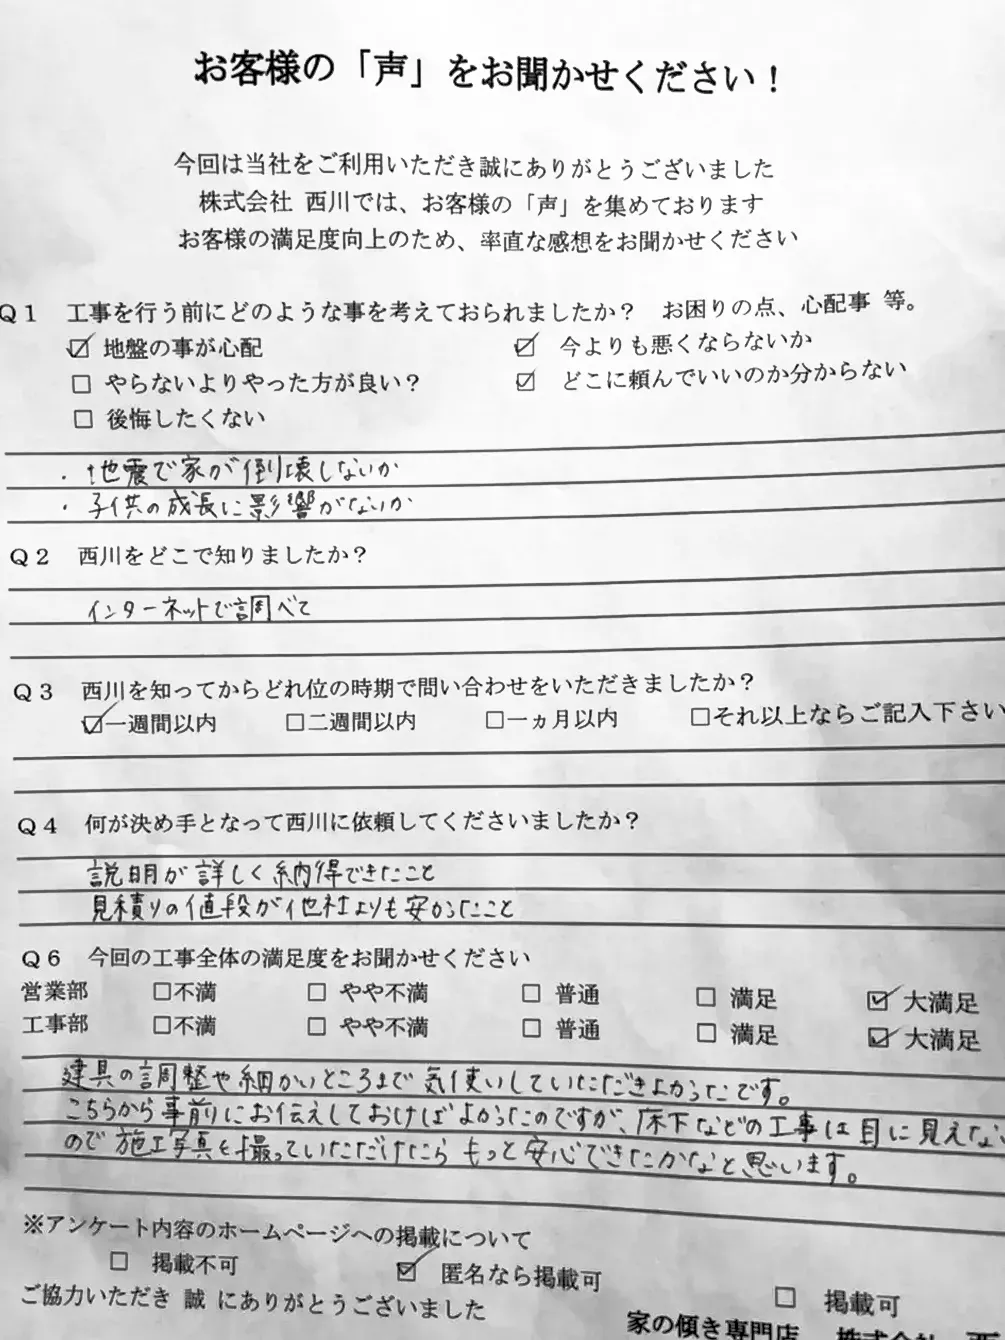 お客様の「声」をお聞かせください！
今回は当社をご利用いただき誠にありがとうございました
株式会社 西川では、お客様の「声」を集めております
お客様の満足度向上のため、率直な感想をお聞かせください
Ｑ１ 工事を行う前にどのような事を考えておられましたか？ お困りの点、心配事 等。
☑ 地盤の事が心配 ☑ 今よりも悪くならないか
□ やらないよりやった方が良い？ ☑ どこに頼んでいいのか分からない
□ 後悔したくない
・地震で家が倒壊しないか
・子供の成長に影響がないか
Ｑ２ 西川をどこで知りましたか？
インターネットで調べて
Ｑ３ 西川を知ってからどれ位の時期で問い合わせをいただきましたか？
☑一週間以内 □二週間以内 □一ヵ月以内 □それ以上ならご記入下さい
Ｑ４ 何が決め手となって西川に依頼してくださいましたか？
説明が詳しく納得できたこと
見積りの値段が他社よりも安かったこと
Ｑ６ 今回の工事全体の満足度をお聞かせください
営業部 □不満 □ やや不満 □ 普通 □ 満足 ☑ 大満足
工事部 □不満 □ やや不満 □ 普通 □ 満足 ☑ 大満足
建具の調整や細かいところまで気使いしていただきよかったです。
こちらから事前にお伝えしておけばよかったのですが、床下などの工事は目に見えない
ので施工写真を撮っていただけたらもっと安心できたかなと思います。
※アンケート内容のホームページへの掲載について
□ 掲載不可 ☑ 匿名なら掲載可 □ 掲載可
ご協力いただき 誠 にありがとうございました
家の傾き専門店 株式会社 西